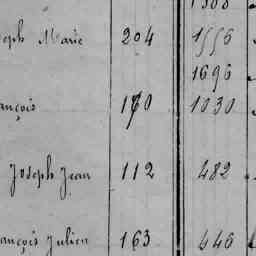 1308
seph Marie 204 1556
1696
ançois 170 1030
Joseph Jean 112 482
ançois Julien 163 446